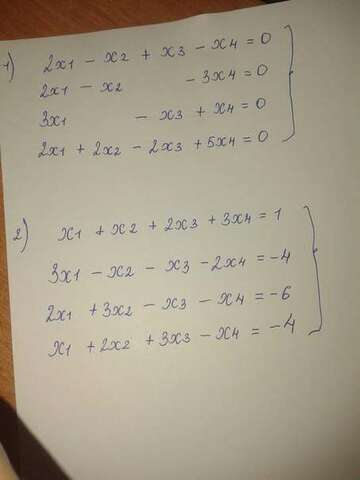 1) 2x1 - x2 + x3 - x4 = 0
2x1 - x2 - 3x4 = 0
3x1 - x3 + x4 = 0
2x1 + 2x2 - 2x3 + 5x4 = 0
2) x1 + x2 + 2x3 + 3x4 = 1
3x1 - x2 - x3 - 2x4 = -4
2x1 + 3x2 - x3 - x4 = -6
x1 + 2x2 + 3x3 - x4 = -4